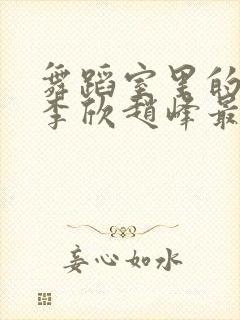 舞蹈室里的
李欣赵峰最
妄心如水